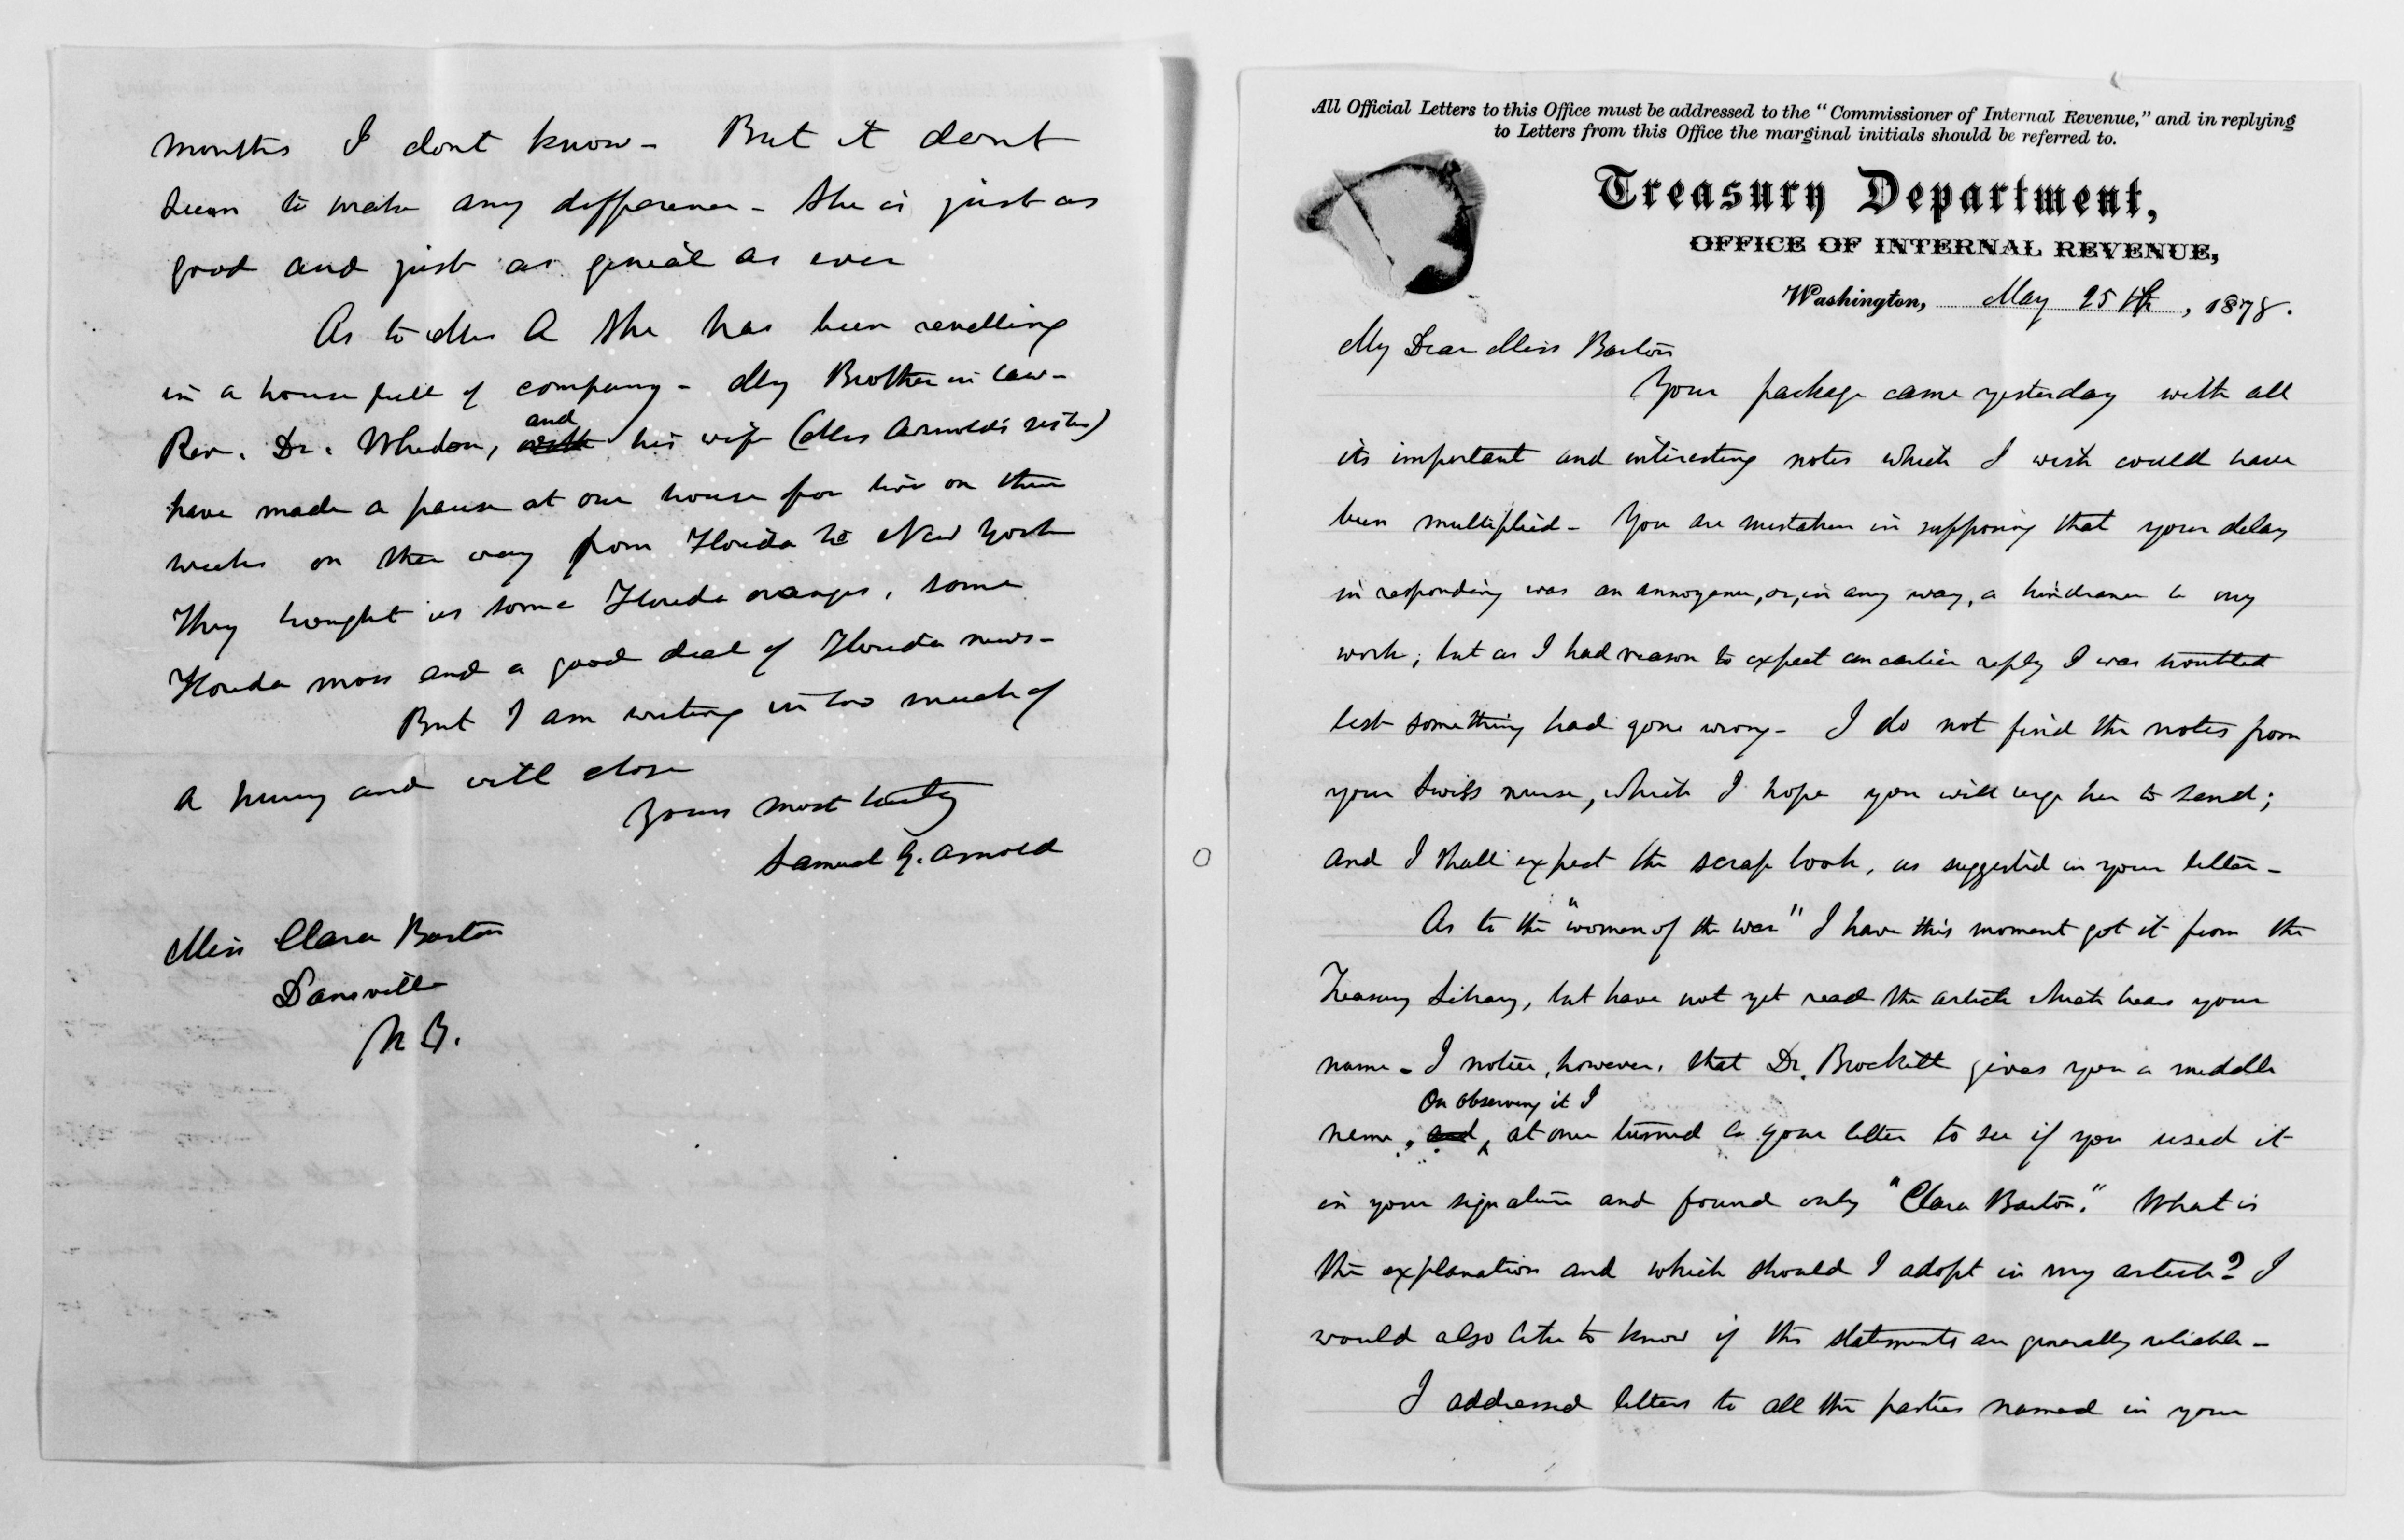 months I dont know - But it dont
seem to make any difference - She is just as
good and just as genial as ever
As to Mrs A she has been revelling
in a house full of company - My Brother in law -
Rev. Dr. Whedon, with and his wife (Mrs Arnold's sister)
have made a pause at our house for two or three
weeks on their way from Florida to New York
They brought us some Florida oranges, some
Florida moss and a good deal of Florida news -
But I am writing in too much of
a hurry and will close
Yours most truly
Samuel G. Arnold
Miss Clara Barton
Dansville
N Y.
All Official Letters to this Office must be addressed to the "Commissioner of Internal Revenue," and in replying
to Letters from this Office the marginal initials should be referred to.
Treasury Department,
OFFICE OF INTERNAL REVENUE,
Washington, May 25th, 1878.
My Dear Miss Barton
Your package came yesterday with all
its important and interesting notes which I wish could have
been multiplied - You are mistaken in supposing that your delay
in responding was an annoyance, or, in any way, a hindrance to my
work; but as I had reason to expect an earlier reply I was troubled
lest something had gone wrong - I do not find the notes from
your Swiss nurse, which I hope you will urge her to send;
and I shall expect the scrap book, as suggested in your letter -
As to the "women of the war" I have this moment got it from the
Treasury Library, but have not yet read the article which bears your
name - I notice, however, that Dr. Brockett gives you a middle
name, and On observing it I at once turned to your letter to see if you used it
in your signature and found only "Clara Barton." What is
the explanation and which should I adopt in my article? I
would also like to know if the statements are generally reliable -
I addressed letters to all the parties named in your